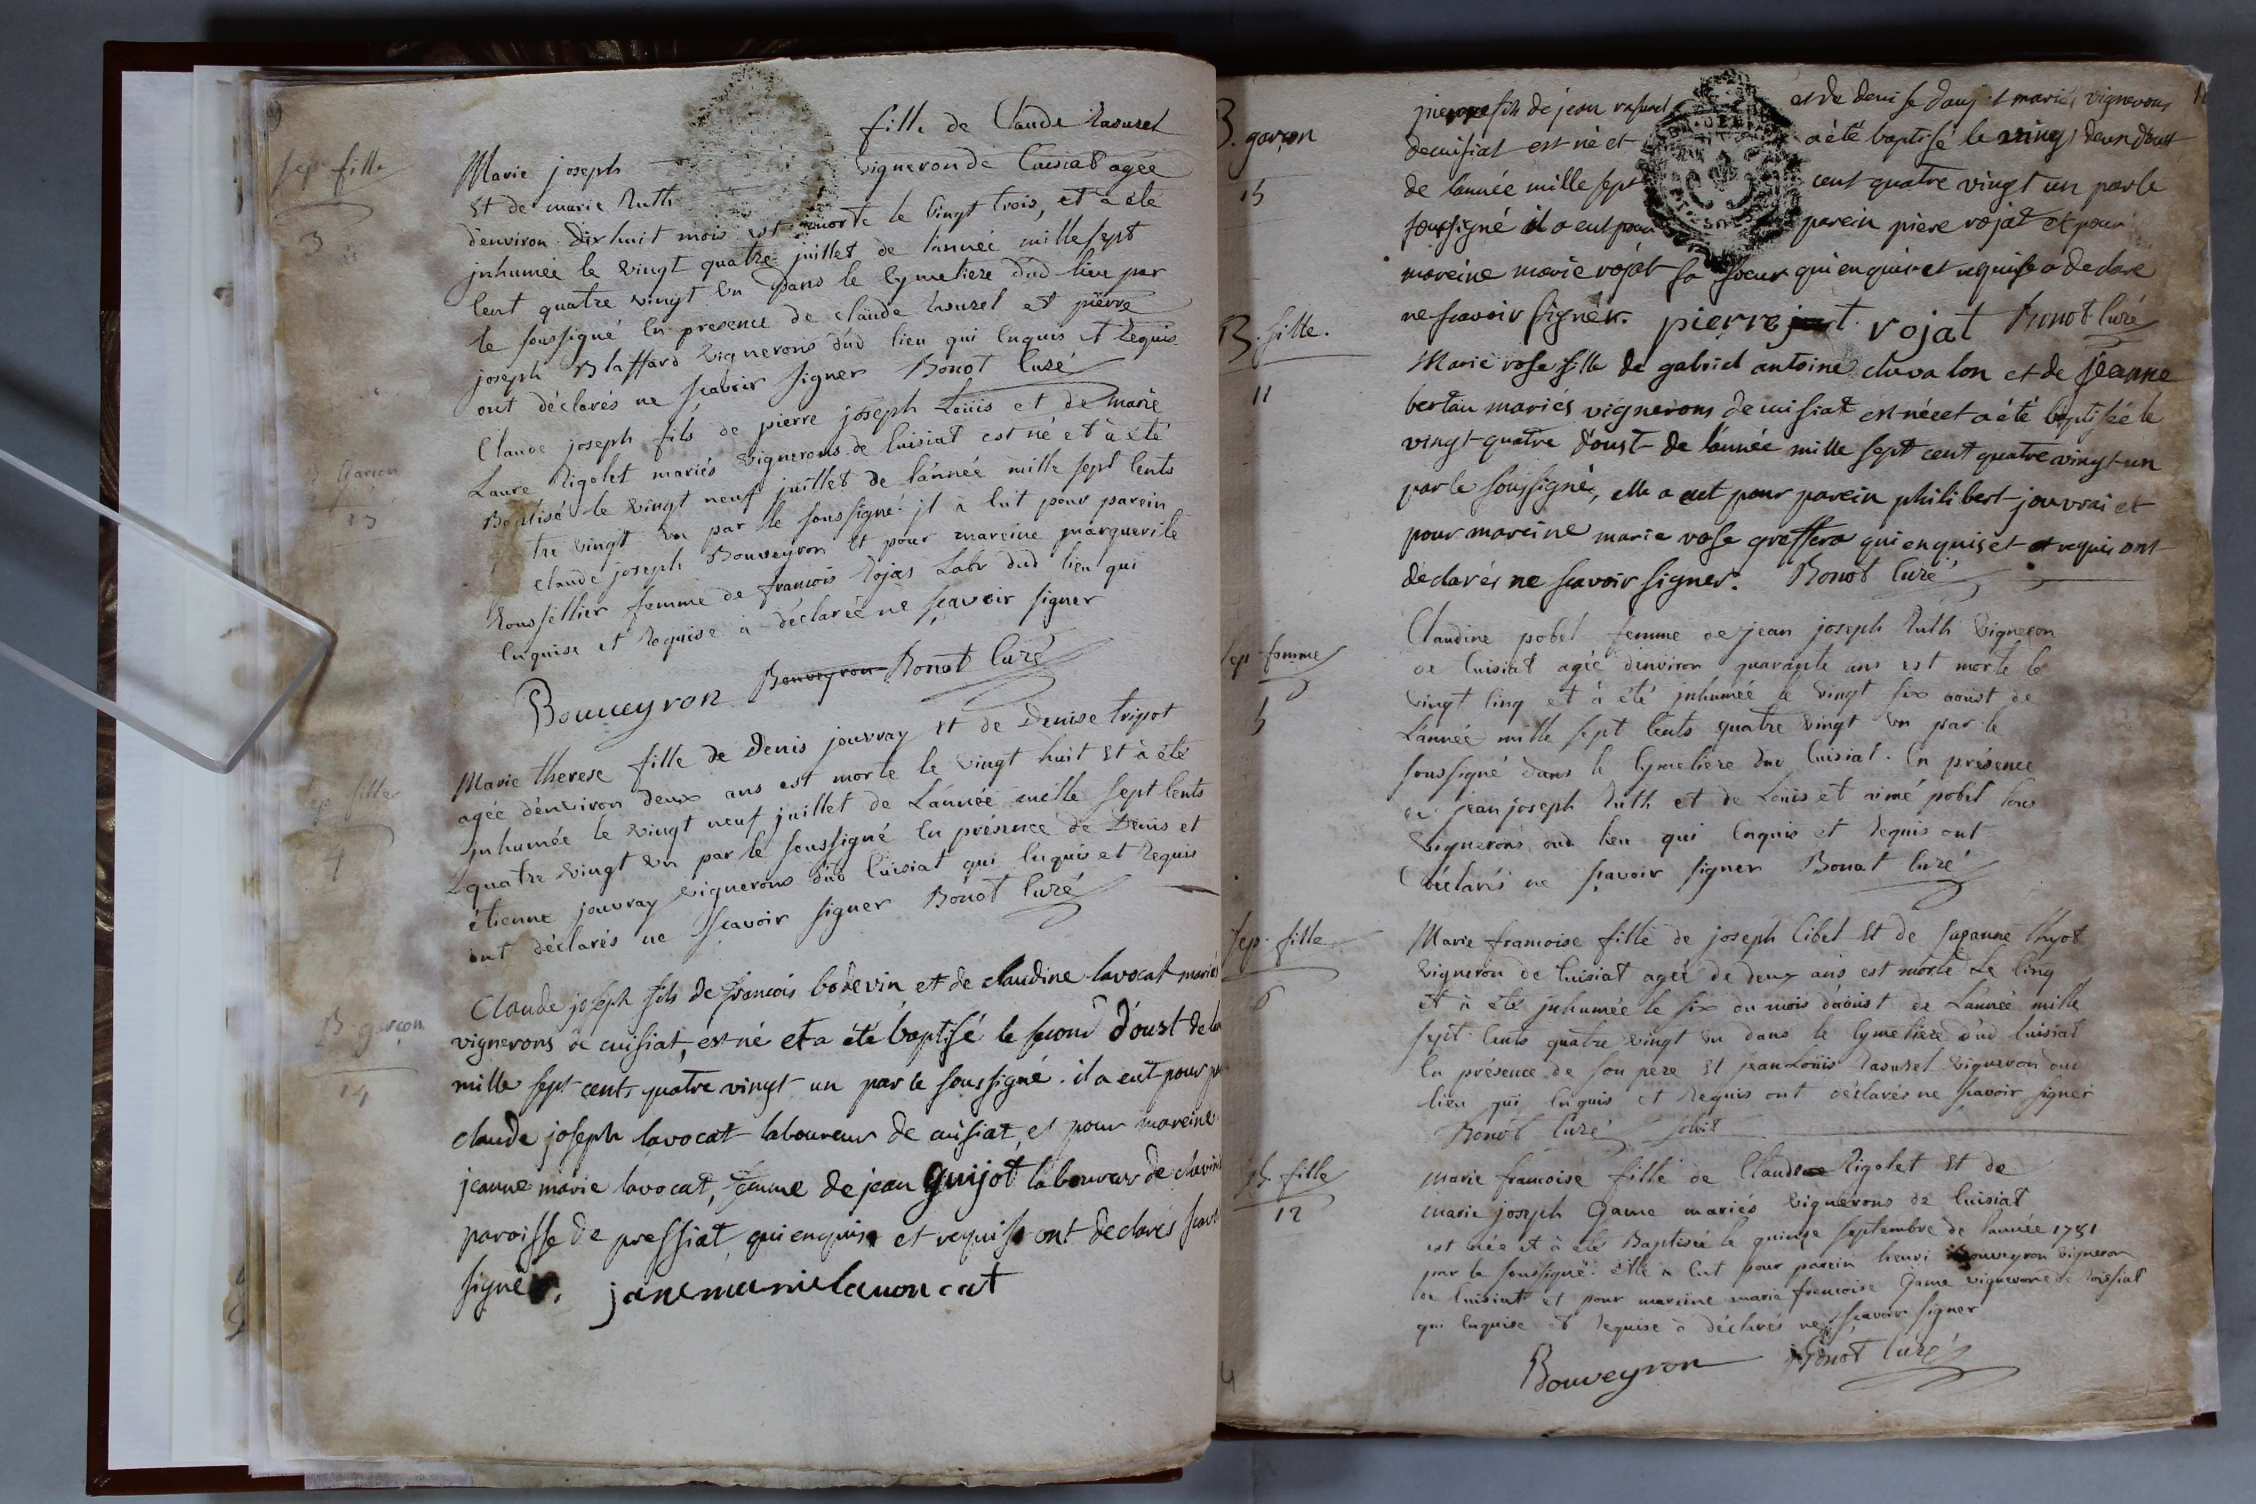 sep fille
3
Marie joseph fille de Claude Rasurel
et de marie Ruth vigneron de Cuisiat agée
d'environ dix huit mois est morte le vingt trois, et à été
inhumée le vingt quatre juillet de l'année mille sept
cent quatre vingt un dans le Cymetiere dud lieu par
le soussigné en presence de claude rasurel et pierre
joseph Blaffard vignerons dud lieu qui enquis et Requis
ont déclarés ne sçavoir signer Bonot Curé
Garçon
13
Claude joseph fils de pierre joseph Loüis et de Marie
Laure Rigolet mariés vignerons de Cuisiat est né et à été
Baptisé le vingt neuf juillet de l'année mille sept cents
tre vingt un par le soussigné. il à eut pour parein
claude joseph Bouveyron et pour mareine marguerite
Roussillier femme de francois Rojas Labr dud lieu qui
enquise et Requise à déclarée ne sçavoir signer
Bouveyron Bouveyron Bonot Curé
sep fille
4
Marie therese fille de Denis jouvray et de Denise tripot
agée d'environ deux ans est morte le vingt huit et à été
inhumée le vingt neuf juillet de L'année mille sept Cents
quatre vingt un par le soussigné en présence de Denis et
étienne jouvray vignerons dud Cuisiat qui enquis et Requis
ont déclarés ne sçavoir signer Bonot Curé
B. garçon
14
Claude joseph fils de francois bodevin et de claudine lavocat mariés
vignerons de cuisiat, est né et a été baptisé le second d'oust de
mille sept cents quatre vingt un par le soussigné. il a eut pour
claude joseph lavocat laboureur de cuisiat, et pour mareine
jeanne marie lavocat, femme de jean Guijot laboureur de
paroisse de pressiat, qui enquis et requis ont declarés
signer. jane marie lavoncat
B. garçon
15
pierre fils de jean rasurel et de denise mariés vignerons
de cuisiat est né et a été baptisé le vingt deux d'oust
de l'année mille sept cent quatre vingt un par le
soussigné il a eut pour parein piere rojat et pour
mareine marie rojat sa soeur qui enquise et requise a declaré
ne scavoir signer. pierre rojat Bonot Curé
B. fille.
11
Marie rose fille de gabriel antoine chevalon et de jeanne
bertau mariés vignerons de cuisiat est née et a été baptisée le
vingt-quatre d'oust de l'année mille sept cent quatre vingt-un
par le soussigné, elle a eut pour parein philibert jouvrai et
pour mareine marie rose graffera qui enquis et et requis ont
déclarés ne scavoir signer. Bonot Curé
sep femme
5
Claudine pobel femme de jean joseph Ruth vigneron
de Cuisiat agée d'environ quarante ans est morte le
vingt cinq et à été inhumée le vingt six aoust de
L'année mille sept Cents quatre vingt un par le
soussigné dans le Cymetiere dud Cuisiat. en présence
de jean joseph Ruth et de Loüis et aimé pobel tous
vignerons dud lieu qui enquis et Requis ont
déclarés ne sçavoir signer Bonot Curé
sep. fille
6
Marie francoise fille de joseph Cibet et de suzanne
vigneron de Cuisiat agée de deux ans est morte Le Cinq
et à été inhumée le six du mois d'aoust de L'année mille
sept Cents quatre vingt un dans le Cymetiere dud Cuisiat
en présence de son pere et jean Loüis Rasurel vigneron dud
lieu qui enquis et Requis ont déclarés ne sçavoir signer
Bonot Curé
B. fille
12
Marie francoise fille de Claude Rigolet et de
marie joseph Game mariés vignerons de Cuisiat
est née et à été Baptisée le quinze septembre de l'année 1781
par le soussigné. elle à eut pour parein henri Bouveyron vigneron
de Cuisiat et pour mareine marie francoise Game vigneronne de
qui enquise et requise à déclarés ne sçavoir signer
Bouveyron Bonot Curé